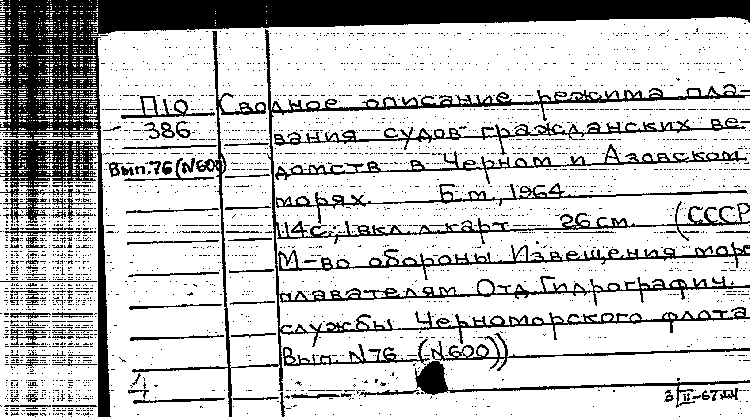 П10 Сводное описание режима пла-
386 вания судов гражданских ве-
Вып.76 (N600) домств в Черном и Азовском
морях. Б.м., 1964.
114 с., 1 вкл. л. карт 26 см. (СССР
М-во обороны. Извещения море
плавателям Отд. Гидрографич.
службы Черноморского флота
Вып. N76 (N600))
4
3/II-67